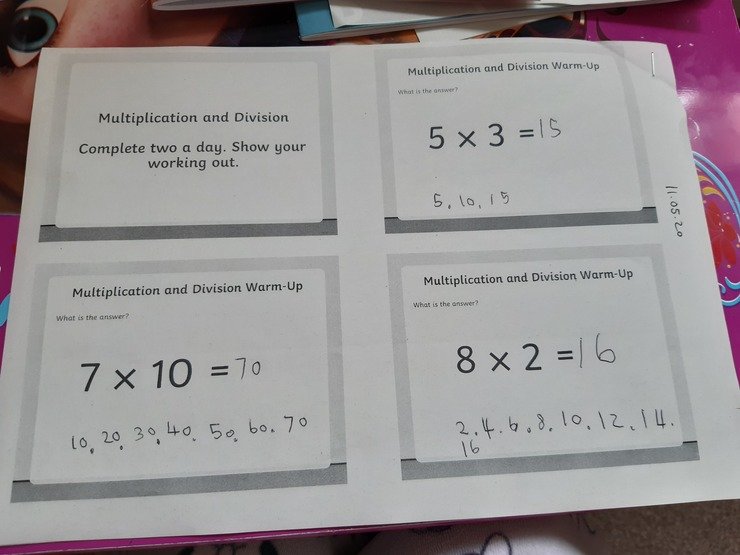 Multiplication and Division
Complete two a day. Show your
working out.
Multiplication and Division Warm-Up
What is the answer?
5 x 3 = 15
5, 10, 15
11.05.20
Multiplication and Division Warm-Up
What is the answer?
7 x 10 = 70
10, 20, 30, 40, 50, 60. 70
Multiplication and Division Warm-Up
What is the answer?
8 x 2 = 16
2.4.6.8.10.12.14.
16